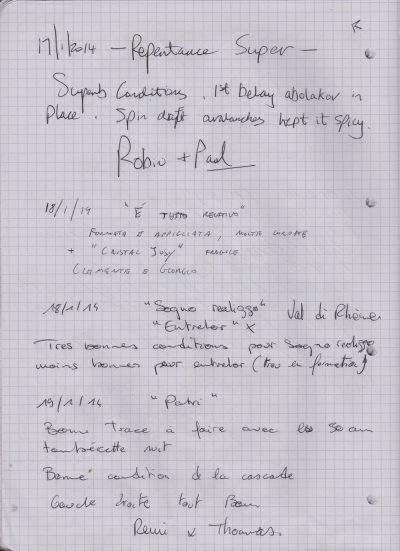 17/1/2014 - Repentance Super -
Superb Conditions. 1st belay abolakov in
place. Spin drift avalanches kept it spicy.
Robin + Paul
18/1/14 "È TUTTO RELATIVO"
FORMATA E APPIGLIATA, MOLTA
+ "CRISTAL JOSY" FRAGILE
CLEMENTE E GIORGIO
18/1/14 "Sogno realizzo" Val di Rhêmes
"Entrelor" X
Tres bonnes conditions pour Sogno realizzo
moins bonnes pour entrelor (trou en formation)
19/1/14 "Patri"
Bonne Trace à faire avec les 50 cm
tombé cette nuit
Bonne condition de la cascade
Gauche droite tout Bon
Remi x Thomas.